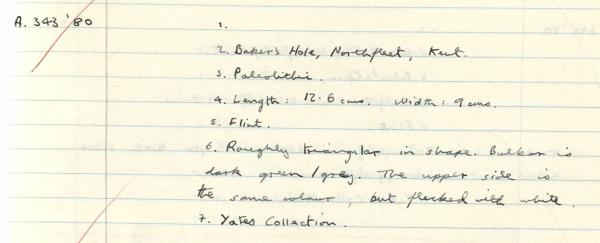 A. 343 '80
1.
2. Baker's Hole, Northfleet, Kent.
3. Paleolithic.
4. Length: 12.6 cms. Width: 9 cms.
5. Flint.
6. Roughly triangular in shape. Bulbar is
dark green/grey. The upper side is
the same colour but flecked with white.
7. Yates Collection.